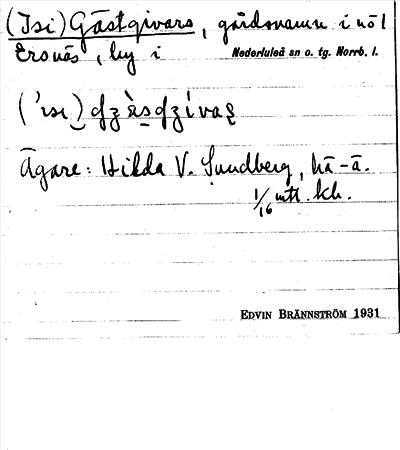 (Isi) Gästgivars, gårdsnamn i nö 1
Ersnäs, by i Nederluleå sn o. tg. Norrb. l.
Ägare: Hilda V. Sundberg, hä-ä.
1/16 mtl. kh.
EDVIN BRÄNNSTRÖM 1931